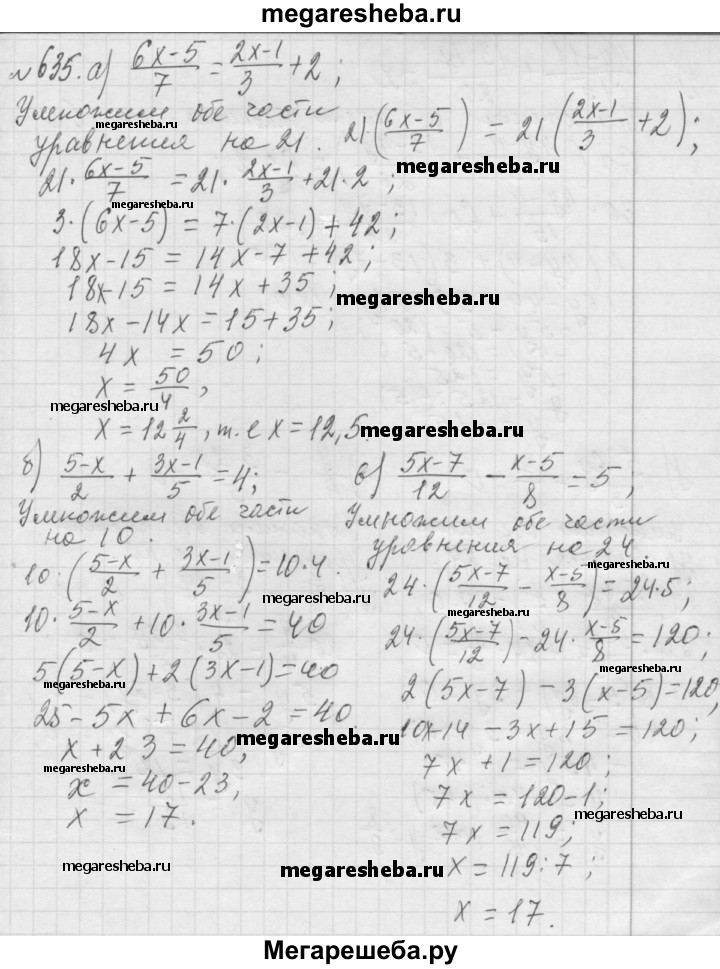 megaresheba.ru
№635. а) (6x-5)/7 = (2x-1)/3 + 2 ;
Умножим обе части
megaresheba.ru
уравнения на 21. 21((6x-5)/7) = 21((2x-1)/3 + 2);
megaresheba.ru
21·(6x-5)/7 = 21·(2x-1)/3 + 21·2 ;
megaresheba.ru
3·(6x-5) = 7·(2x-1) + 42;
18x-15 = 14x-7+42;
18x-15 = 14x+35 ;
megaresheba.ru
18x-14x = 15+35;
4x = 50 ;
x = 50/4 ,
megaresheba.ru
x = 12 2/4 , т.е x = 12,5.
megaresheba.ru
б) (5-x)/2 + (3x-1)/5 = 4;
Умножим обе части
на 10.
10·((5-x)/2 + (3x-1)/5) = 10·4.
megaresheba.ru
10·(5-x)/2 + 10·(3x-1)/5 = 40
5(5-x)+2(3x-1)=40
megaresheba.ru
25-5x+6x-2=40.
megaresheba.ru
x+23=40,
megaresheba.ru
x = 40-23,
x = 17.
megaresheba.ru
в) (5x-7)/12 - (x-5)/8 = 5 ;
Умножим обе части
уравнения на 24.
24·((5x-7)/12 - (x-5)/8) = 24·5;
megaresheba.ru
24·((5x-7)/12) - 24·(x-5)/8 = 120;
megaresheba.ru
2(5x-7) - 3(x-5)=120,
megaresheba.ru
10x-14 - 3x+15 = 120;
7x + 1 = 120;
7x = 120-1;
7x = 119;
megaresheba.ru
x = 119:7 ;
x = 17.
Мегарешеба.ру